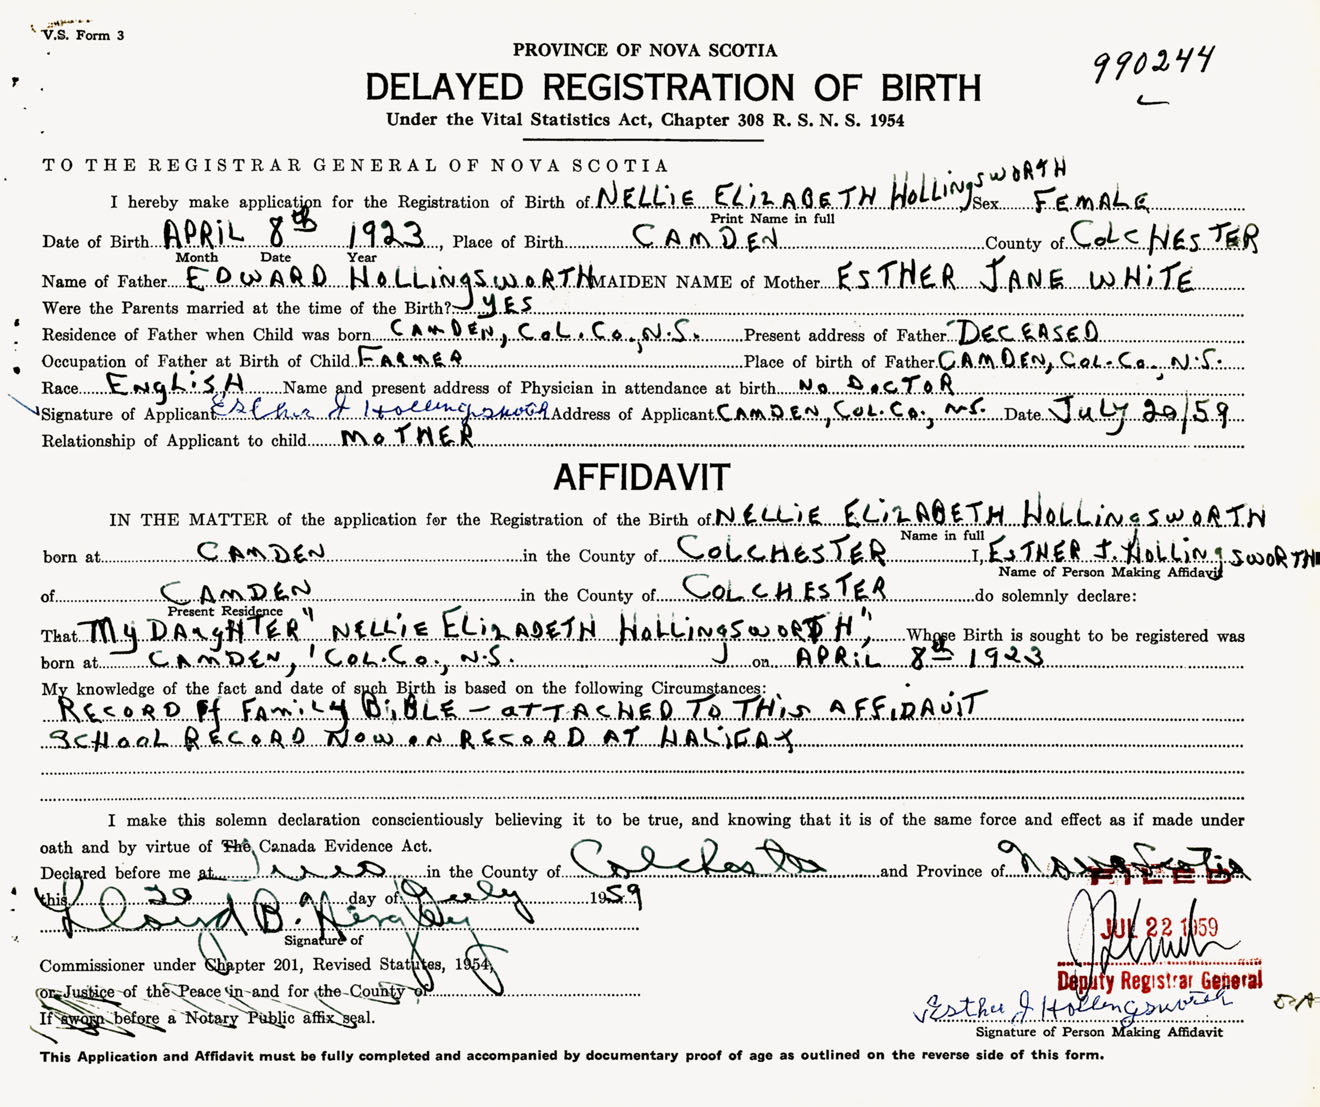 V.S. Form 3
990244
PROVINCE OF NOVA SCOTIA
DELAYED REGISTRATION OF BIRTH
Under the Vital Statistics Act, Chapter 308 R. S. N. S. 1954
TO THE REGISTRAR GENERAL OF NOVA SCOTIA
I hereby make application for the Registration of Birth of NELLIE ELIZABETH HOLLINGSWORTH Sex FEMALE
Print Name in full
Date of Birth APRIL 8th 1923, Place of Birth CAMDEN County of COLCHESTER
Month Date Year
Name of Father EDWARD HOLLINGSWORTH MAIDEN NAME of Mother ESTHER JANE WHITE
Were the Parents married at the time of the Birth? YES
Residence of Father when Child was born CAMDEN, COL. CO., N.S. Present address of Father DECEASED
Occupation of Father at Birth of Child FARMER Place of birth of Father CAMDEN, COL. CO., N.S.
Race ENGLISH Name and present address of Physician in attendance at birth NO DOCTOR
Signature of Applicant Esther J Hollingsworth Address of Applicant CAMDEN, COL. CO., N.S. Date JULY 20/59
Relationship of Applicant to child MOTHER
AFFIDAVIT
IN THE MATTER of the application for the Registration of the Birth of NELLIE ELIZABETH HOLLINGSWORTH
Name in full
born at CAMDEN in the County of COLCHESTER I, ESTHER J. HOLLINGSWORTH
Name of Person Making Affidavit
of CAMDEN in the County of COLCHESTER do solemnly declare:
Present Residence
That MY DAUGHTER "NELLIE ELIZABETH HOLLINGSWORTH", Whose Birth is sought to be registered was
born at CAMDEN, COL. CO., N.S. on APRIL 8th 1923
My knowledge of the fact and date of such Birth is based on the following Circumstances:
RECORD OF FAMILY BIBLE — ATTACHED TO THIS AFFIDAVIT
SCHOOL RECORD NOW ON RECORD AT HALIFAX
I make this solemn declaration conscientiously believing it to be true, and knowing that it is of the same force and effect as if made under
oath and by virtue of The Canada Evidence Act.
Declared before me at Truro in the County of Colchester and Province of Nova Scotia
this 20 day of July 1959
FILED
JUL 22 1959
Deputy Registrar General
Lloyd B.
Signature of
Commissioner under Chapter 201, Revised Statutes, 1954,
or Justice of the Peace in and for the County of
If sworn before a Notary Public affix seal.
Esther J Hollingsworth
Signature of Person Making Affidavit
This Application and Affidavit must be fully completed and accompanied by documentary proof of age as outlined on the reverse side of this form.